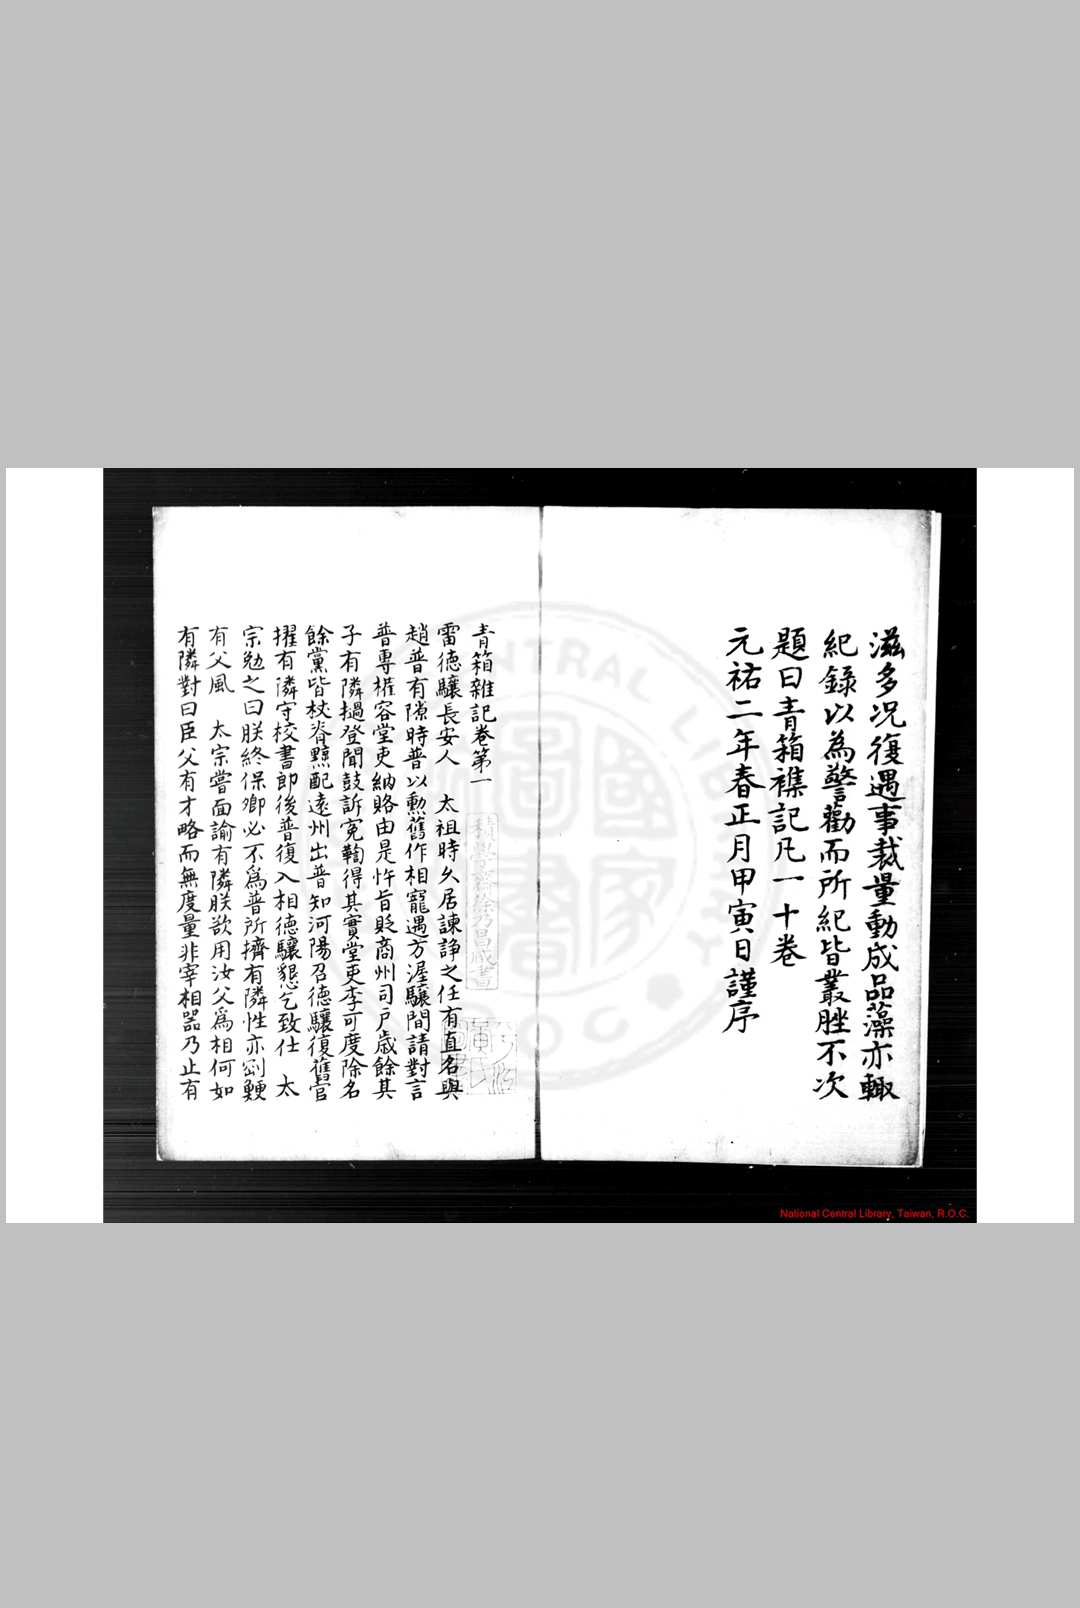 滋多况復遇事裁量動成品藻亦輙
紀錄以為警勸而所紀皆叢脞不次
題曰青箱襍記凡一十卷
元祐二年春正月甲寅日謹序
青箱雜記卷第一
積學齋徐乃昌藏書
雷德驤長安人 太祖時久居諫諍之任有直名與
趙普有隙時普以勲舊作相寵遇方渥驤間請對言
普專權容堂吏納賂由是忤旨貶商州司戶歲餘其
子有隣撾登聞鼓訴寃鞫得其實堂吏李可度除名
餘黨皆杖脊黥配遠州出普知河陽召德驤復舊官
擢有隣守校書郎後普復入相德驤懇乞致仕 太
宗勉之曰朕終保卿必不爲普所擠有隣性亦剄鯁
有父風 太宗嘗面諭有隣朕欲用汝父爲相何如
有隣對曰臣父有才略而無度量非宰相器乃止有
CENTRAL LIBRARY
R.O.C.
National Central Library, Taiwan, R.O.C.